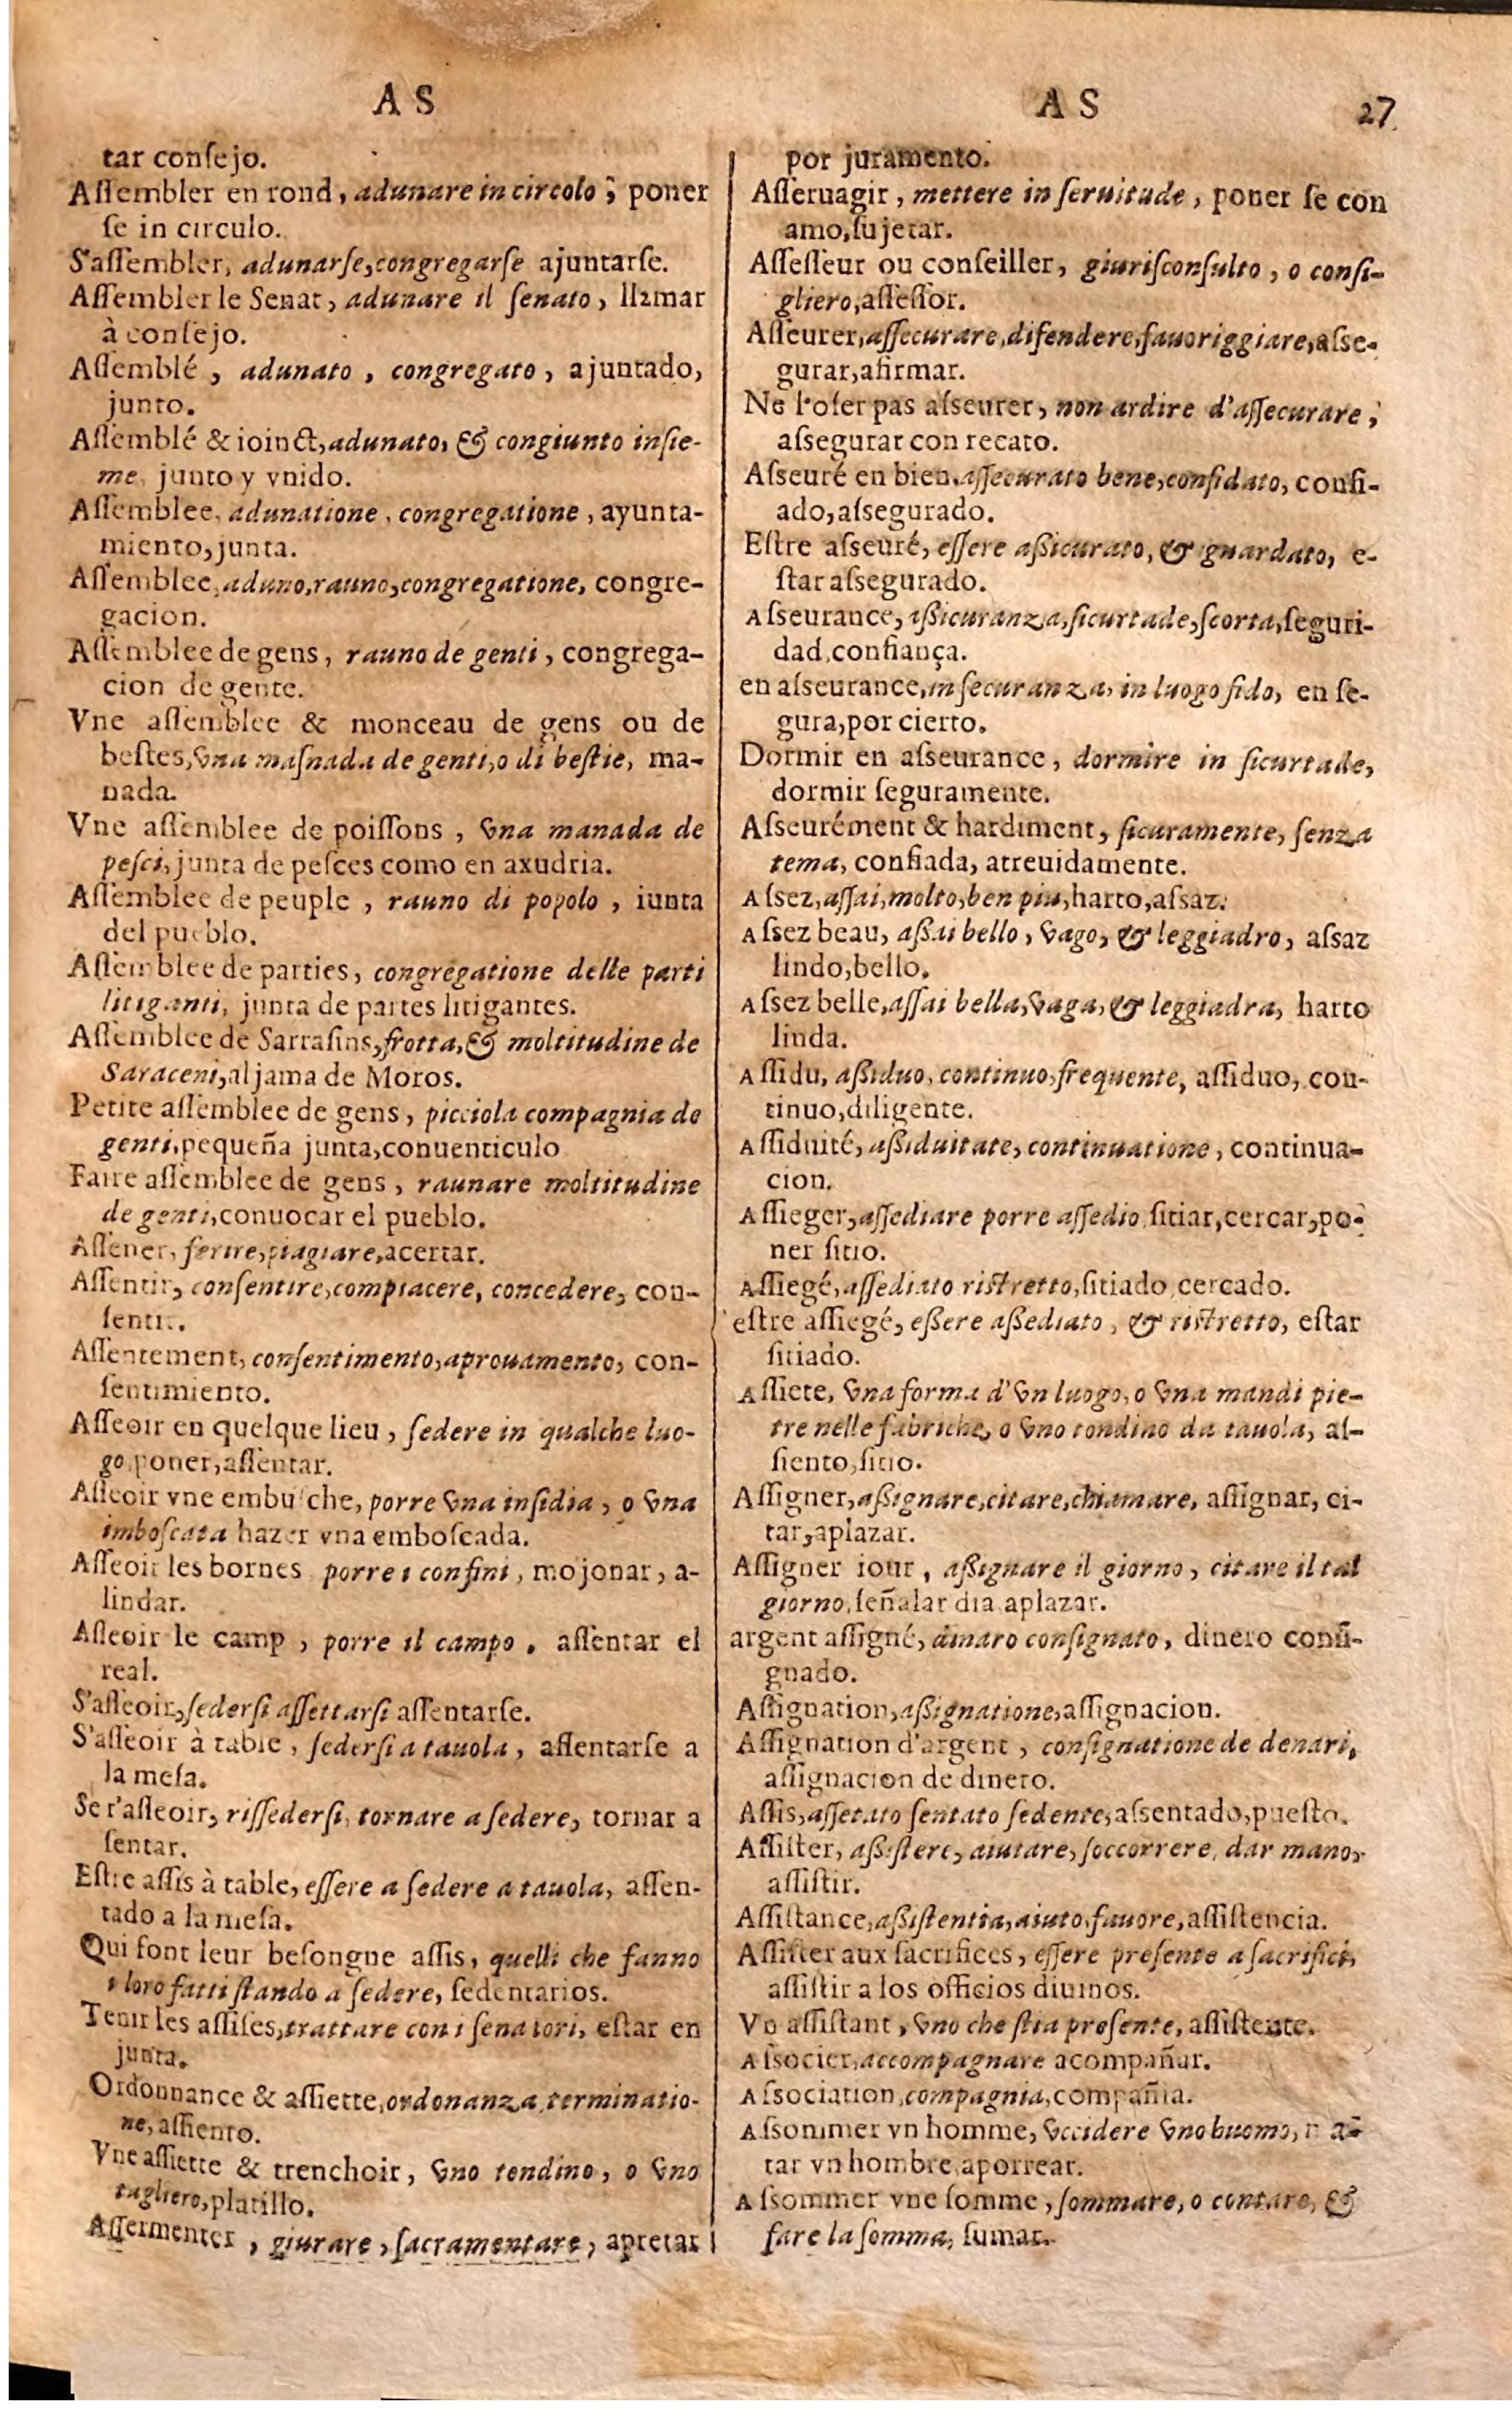 A S
tar conſejo.
Aſſembler en rond, adunare in circolo; poner
ſe in circulo.
S'aſſembler, adunarſe, congregarſe ajuntarſe.
Aſſembler le Senat, adunare il ſenato, llamar
à conſejo.
Aſſemblé, adunato, congregato, ajuntado,
junto.
Aſſemblé & ioinct, adunato, & congiunto inſie-
me, junto y vnido.
Aſſemblee, adunatione, congregatione, ayunta-
miento, junta.
Aſſemblee, aduno, rauno, congregatione, congre-
gacion.
Aſſemblee de gens, rauno de genti, congrega-
cion de gente.
Vne aſſemblee & monceau de gens ou de
beſtes, vna maſnada de genti, o di beſtie, ma-
nada.
Vne aſſemblee de poiſſons, vna manada de
peſci, junta de peſces como en axudria.
Aſſemblee de peuple, rauno di popolo, iunta
del pueblo.
Aſſemblee de parties, congregatione delle parti
litiganti, junta de partes litigantes.
Aſſemblee de Sarraſins, frotta, & moltitudine de
Saraceni, aljama de Moros.
Petite aſſemblee de gens, picciola compagnia de
genti, pequeña junta, conuenticulo
Faire aſſemblee de gens, raunare moltitudine
de genti, conuocar el pueblo.
Aſſener, ferire, piagiare, acertar.
Aſſentir, conſentire, compiacere, concedere, con-
ſentir.
Aſſentement, conſentimento, aprouamento, con-
ſentimiento.
Aſſeoir en quelque lieu, ſedere in qualche luo-
go, poner, aſſentar.
Aſſeoir vne embuſche, porre vna inſidia, o vna
imboſcata hazer vna emboſcada.
Aſſeoir les bornes porre i confini, mojonar, a-
lindar.
Aſſeoir le camp, porre il campo, aſſentar el
real.
S'aſſeoir, ſederſi aſſettarſi aſſentarſe.
S'aſſeoir à table, ſederſi a tauola, aſſentarſe a
la meſa.
Se r'aſſeoir, riſſederſi, tornare a ſedere, tornar a
ſentar.
Eſtre aſſis à table, eſſere a ſedere a tauola, aſſen-
tado a la meſa.
Qui font leur beſongne aſſis, quelli che fanno
i loro fatti ſtando a ſedere, ſedentarios.
Tenir les aſſiſes, trattare con i ſenatori, eſtar en
junta.
Ordonnance & aſſiette, ordonanza, terminatio-
ne, aſſiento.
Vne aſſiette & trenchoir, vno tondino, o vno
tagliero, platillo.
Aſſermenter, giurare, ſacramentare, apretar
A S 27
por juramento.
Aſſeruagir, mettere in ſeruitude, poner ſe con
amo, ſujetar.
Aſſeſſeur ou conſeiller, giuriſconſulto, o conſi-
gliero, aſſeſſor.
Aſſeurer, aſſecurare, difendere, fauoriggiare, aſse-
gurar, afirmar.
Ne l'oſer pas aſseurer, non ardire d'aſſecurare,
aſsegurar con recato.
Aſseuré en bien, aſſecurato bene, confidato, confi-
ado, aſsegurado.
Eſtre aſseuré, eſſere aßicurato, & guardato, e-
ſtar aſsegurado.
Aſseurance, aßicuranza, ſicurtade, ſcorta, ſeguri-
dad, confiança.
en aſseurance, in ſecuranza, in luogo fido, en ſe-
gura, por cierto.
Dormir en aſseurance, dormire in ſicurtade,
dormir ſeguramente.
Aſseurément & hardiment, ſicuramente, ſenza
tema, confiada, atreuidamente.
Aſsez, aſſai, molto, ben piu, harto, aſsaz.
Aſsez beau, aßai bello, vago, & leggiadro, aſsaz
lindo, bello.
Aſsez belle, aſſai bella, vaga, & leggiadra, harto
linda.
Aſſidu, aßiduo, continuo, frequente, aſſiduo, con-
tinuo, diligente.
Aſſiduité, aßiduitate, continuatione, continua-
cion.
Aſſieger, aſſediare porre aſſedio, ſitiar, cercar, po-
ner ſitio.
Aſſiegé, aſſediato riſtretto, ſitiado, cercado.
eſtre aſſiegé, eßere aßediato, & riſtretto, eſtar
ſitiado.
Aſſiete, vna forma d'vn luogo, o vna mandi pie-
tre nelle fabriche, o vno tondino da tauola, aſ-
ſiento, ſitio.
Aſſigner, aßignare, citare, chiamare, aſſignar, ci-
tar, aplazar.
Aſſigner iour, aßignare il giorno, citare il tal
giorno, ſeñalar dia aplazar.
argent aſſigné, dinaro conſignato, dinero conſi-
gnado.
Aſſignation, aßignatione, aſſignacion.
Aſſignation d'argent, conſignatione de denari,
aſſignacion de dinero.
Aſſis, aſſetato ſentato ſedente, aſsentado, pueſto.
Aſſiſter, aßiſtere, aiutare, ſoccorrere, dar mano,
aſſiſtir.
Aſſiſtance, aßiſtentia, aiuto, fauore, aſſiſtencia.
Aſſiſter aux ſacrifices, eſſere preſente a ſacrifici,
aſſiſtir a los officios diuinos.
Vn aſſiſtant, vno che ſtia preſente, aſſiſtente.
Aſsocier, accompagnare acompañar.
Aſsociation, compagnia, compañia.
Aſsommer vn homme, vccidere vno huomo, ma-
tar vn hombre, aporrear.
Aſsommer vne ſomme, ſommare, o contare, &
fare la ſomma, ſumar.